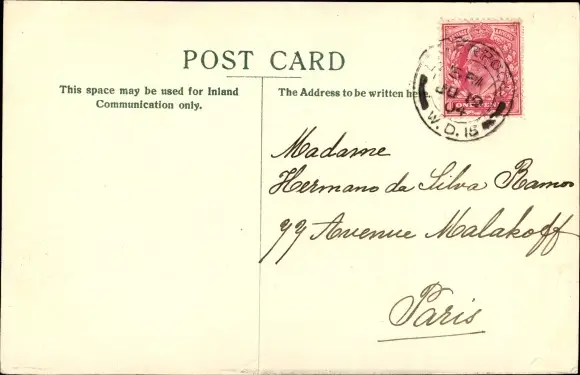 POST CARD
This space may be used for Inland
Communication only.
The Address to be written here.
LIVERPOOL
5 PM
JU 19
04
W.D.15
ONE PENNY
Madame
Hermano da Silva Ramos
77 Avenue Malakoff
Paris